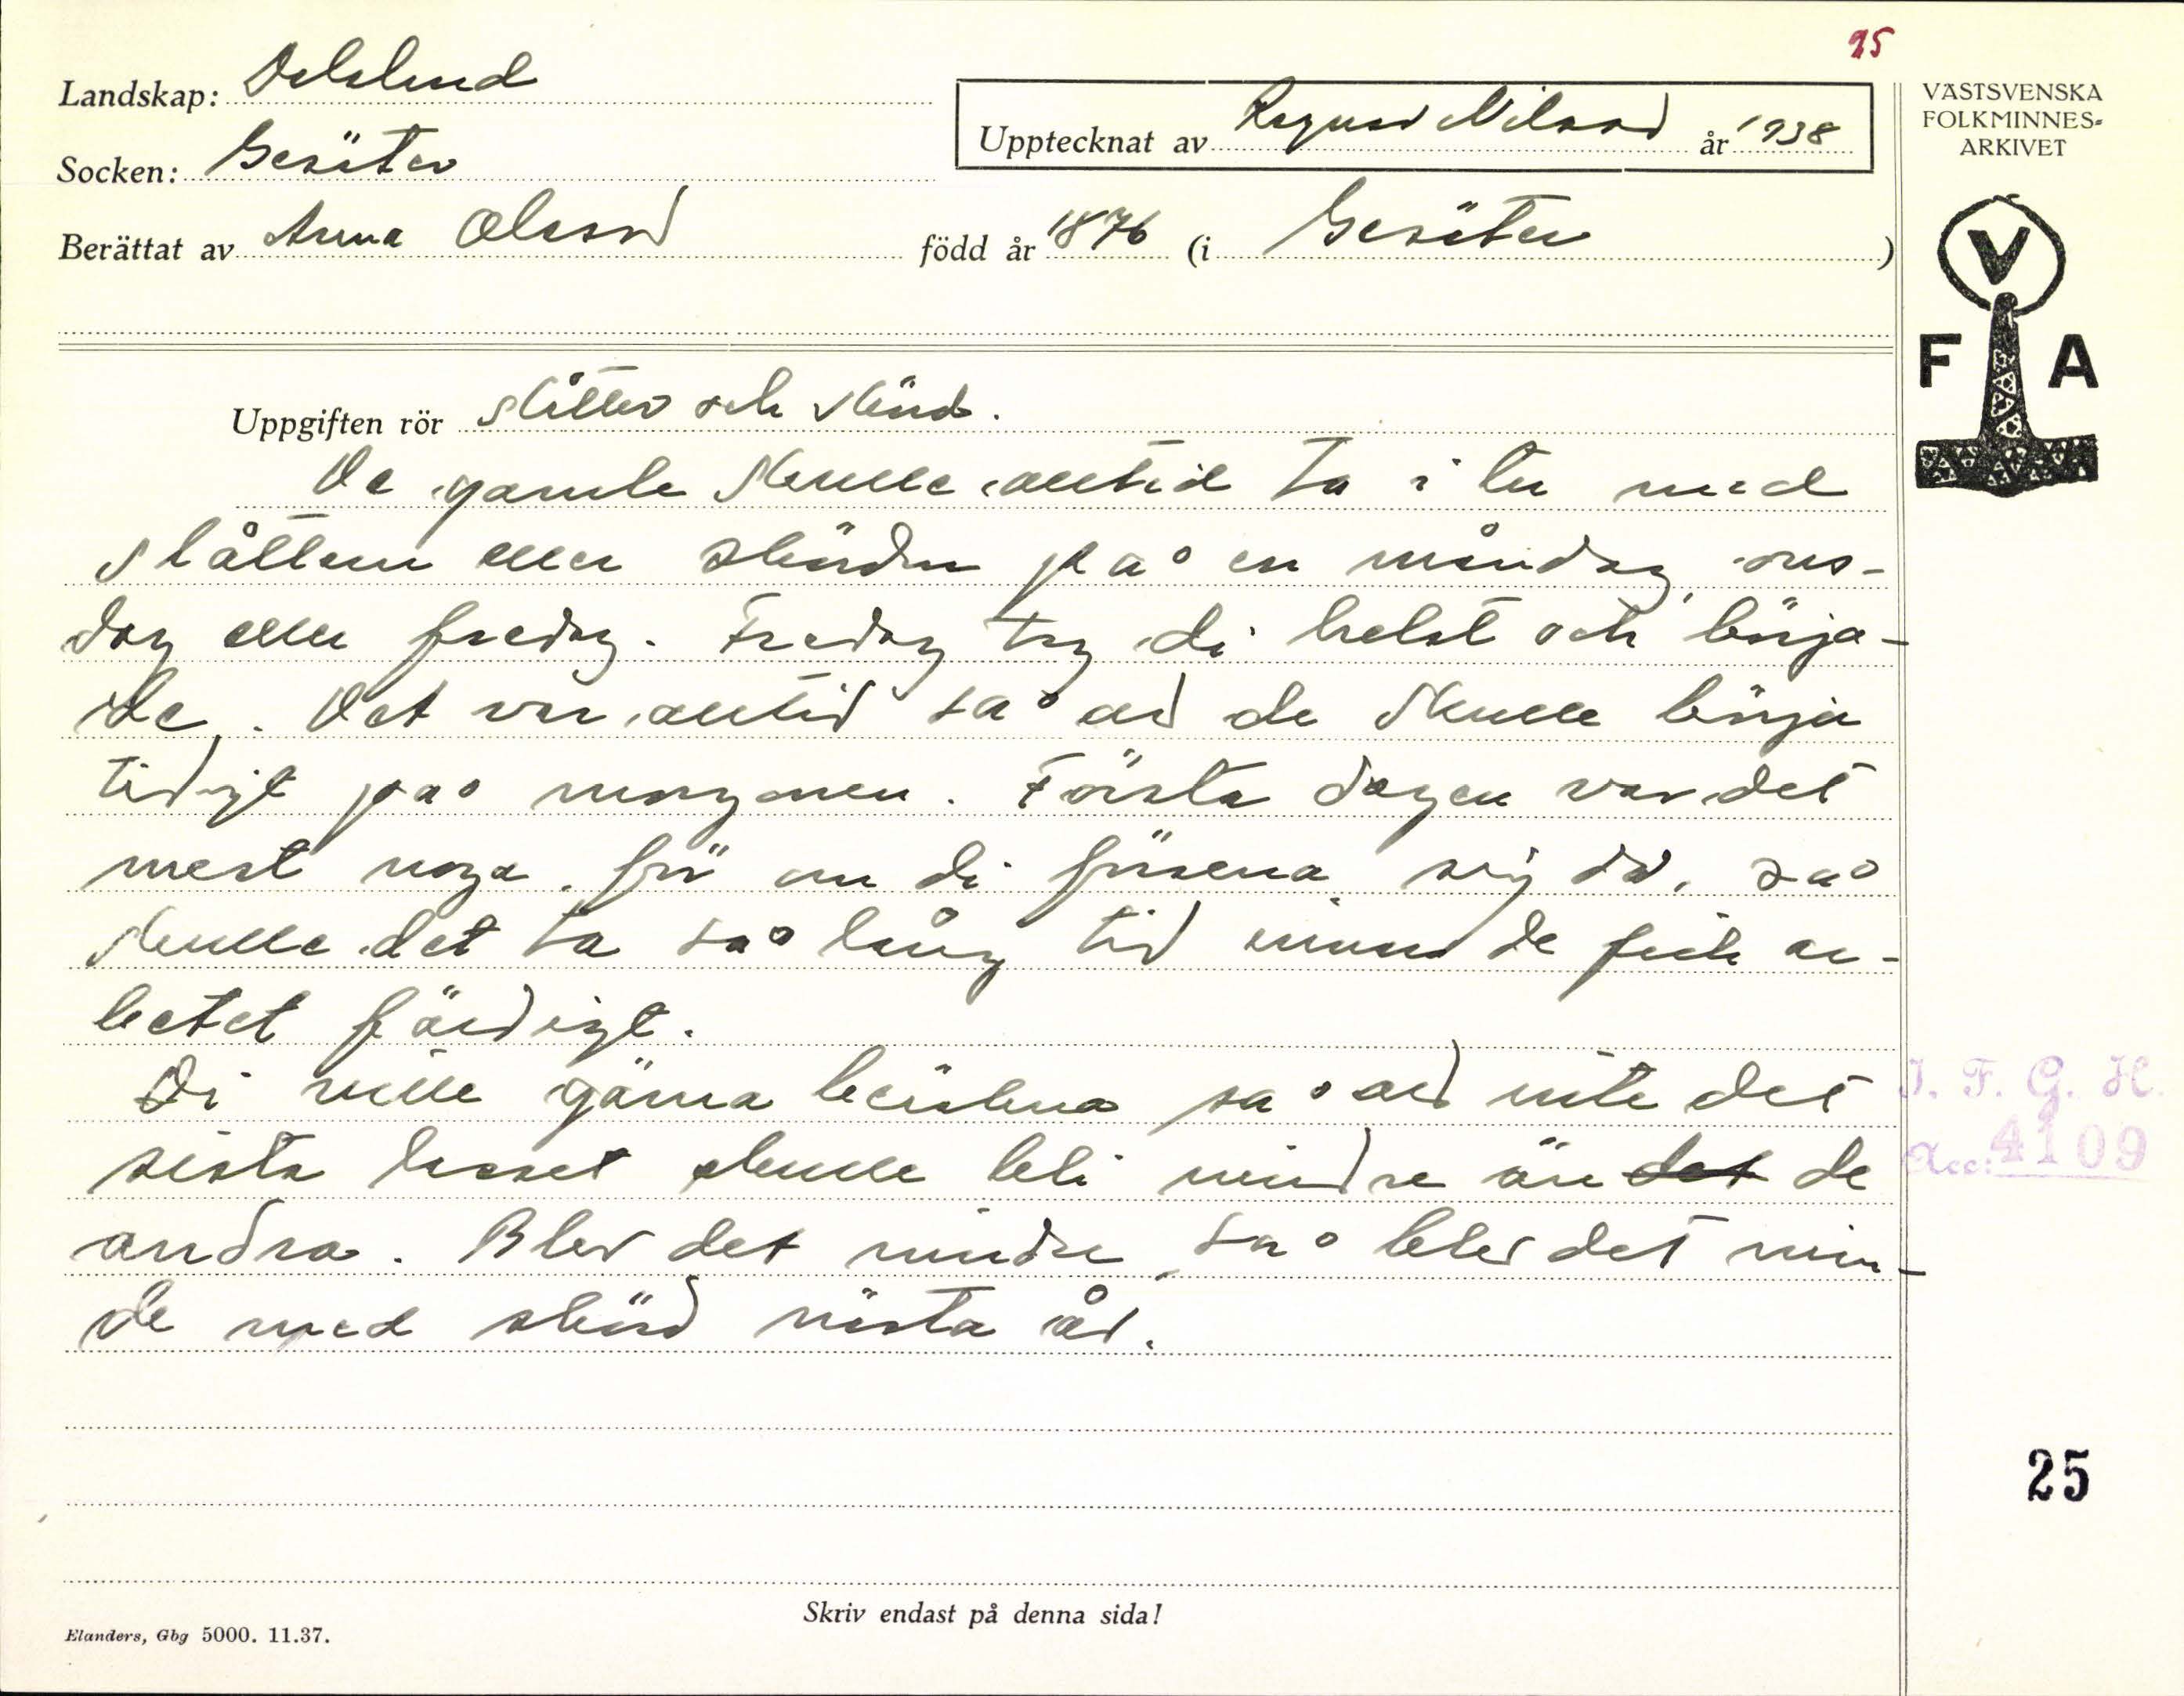 25
Landskap: Dalsland
Upptecknat av Ragnar Nilsson år 1938
Socken: Gesäter
Berättat av Anna Olsson född år 1876 (i Gesäter)
VÄSTSVENSKA
FOLKMINNES=
ARKIVET
V
F A
Uppgiften rör slåtter och skörd.
De gamle skulle alltid ta i tu med
slåttern eller skörden på en måndag, ons-
dag eller fredag. Fredag tog di helst och börja-
de. Det var alltid så att de skulle börja
tidigt på morgonen. Första dagen var det
mest noga, för om di försena sig då, så
skulle det ta så lång tid innan de fick ar-
betet färdigt.
Di ville gärna beräkna så att inte det
sista lasset skulle bli mindre än det de
andra. Blev det mindre, så blev det min-
de med skörd nästa år.
I. F. G. H.
Acc: 4109
25
Skriv endast på denna sida!
Elanders, Gbg 5000. 11.37.